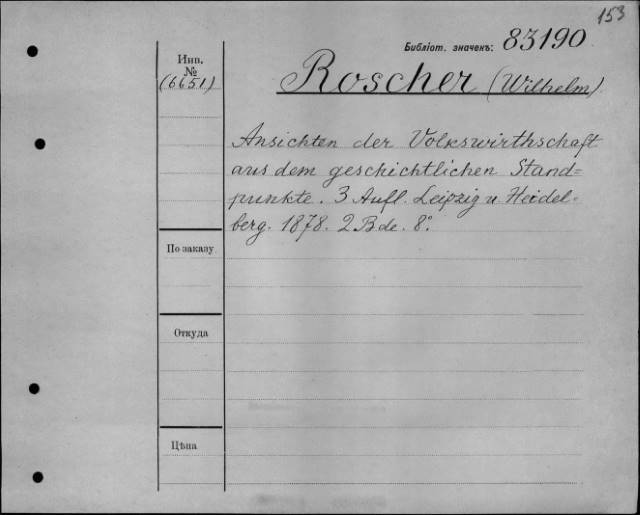 153
Библіот. значекъ: 83190
Инв.
№
(6651)
Roscher (Wilhelm)
Ansichten der Volkswirthschaft
aus dem geschichtlichen Stand=
punkte. 3 Aufl. Leipzig u Heidel-
berg. 1878. 2 Bde. 8°.
По заказу
Откуда
Цѣна